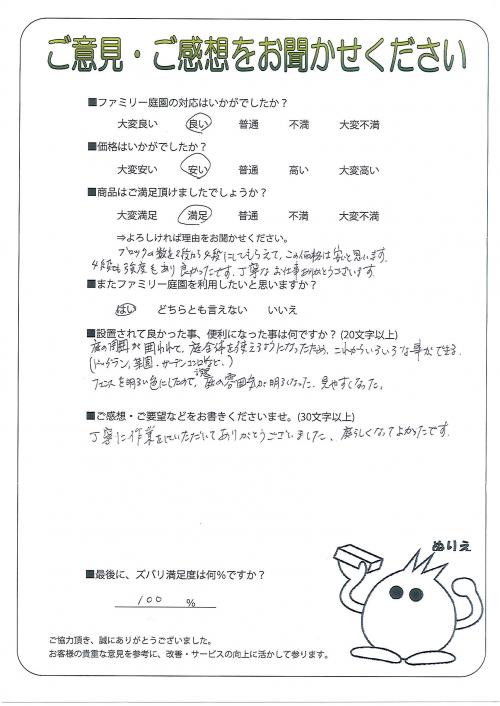 ご意見・ご感想をお聞かせください
■ファミリー庭園の対応はいかがでしたか？
大変良い 良い 普通 不満 大変不満
■価格はいかがでしたか？
大変安い 安い 普通 高い 大変高い
■商品はご満足頂けましたでしょうか？
大変満足 満足 普通 不満 大変不満
⇒よろしければ理由をお聞かせください。
ブロックの数を2段から4段にしてもらえて、この価格は安いと思います。
4段でも強度もあり良かったです。丁寧なお仕事ありがとうございます。
■またファミリー庭園を利用したいと思いますか？
はい どちらとも言えない いいえ
■設置されて良かった事、便利になった事は何ですか？(20文字以上)
庭の周囲が囲われて、庭全体を使えるようになったため、これからいろいろな事ができる。
(ドッグラン、菜園、ガーデン など。)
フェンスを明るい色にしたので、庭の雰囲気が明るくなった。見やすくなった。
■ご感想・ご要望などをお書きくださいませ。(30文字以上)
丁寧に作業をしていただいてありがとうございました、庭らしくなってよかったです.
ぬりえ
■最後に、ズバリ満足度は何％ですか？
100 ％
ご協力頂き、誠にありがとうございました。
お客様の貴重な意見を参考に、改善・サービスの向上に活かして参ります。